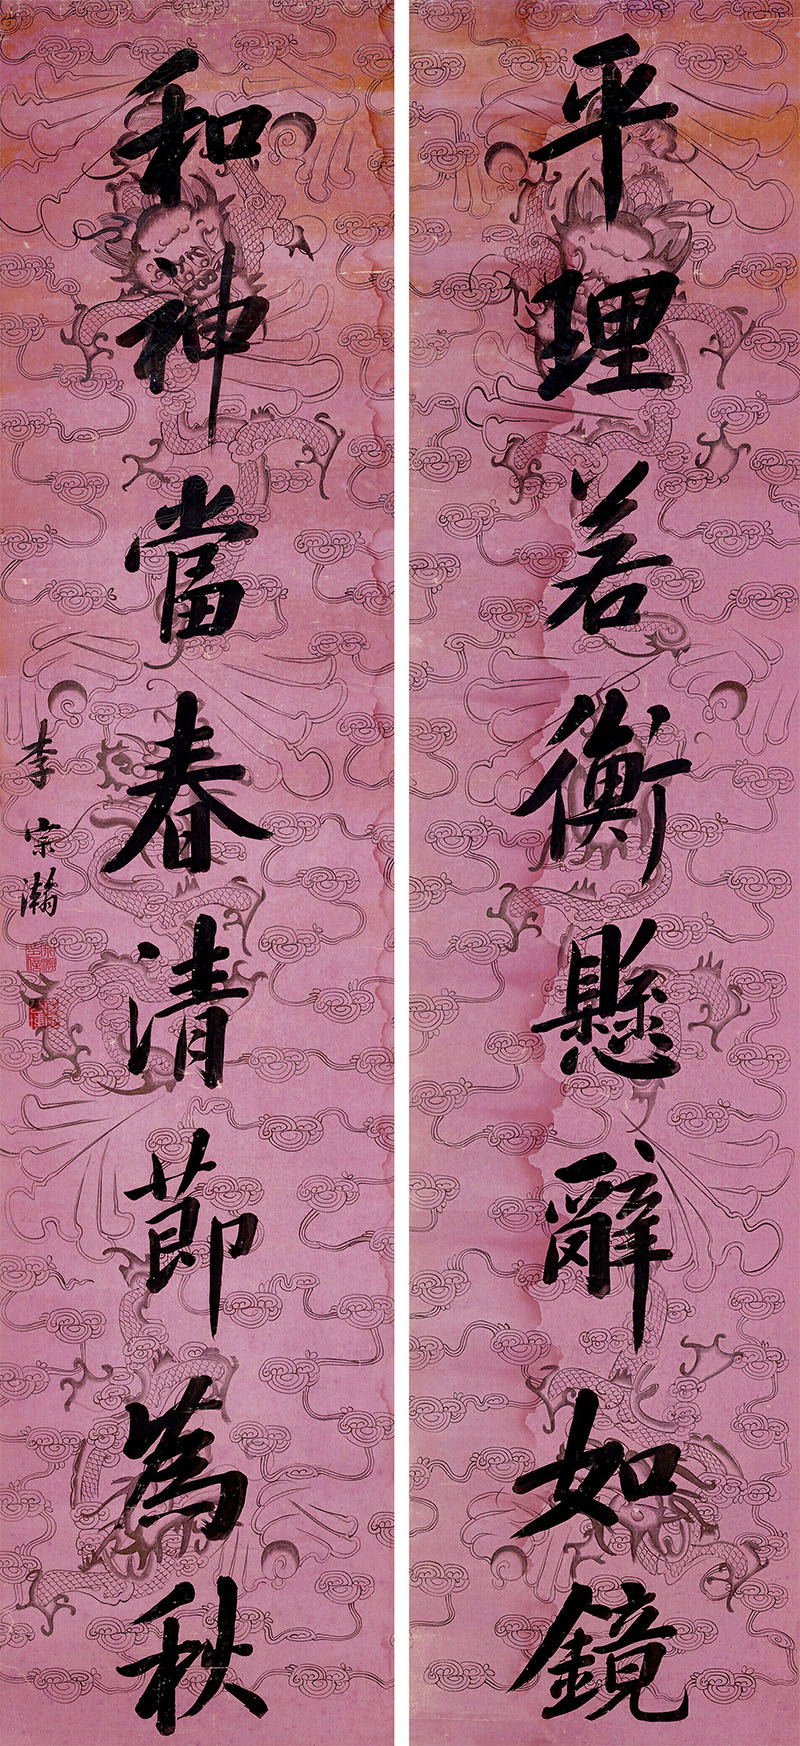 平理若衡懸辭如鏡
和神當春清節為秋
李宗瀚